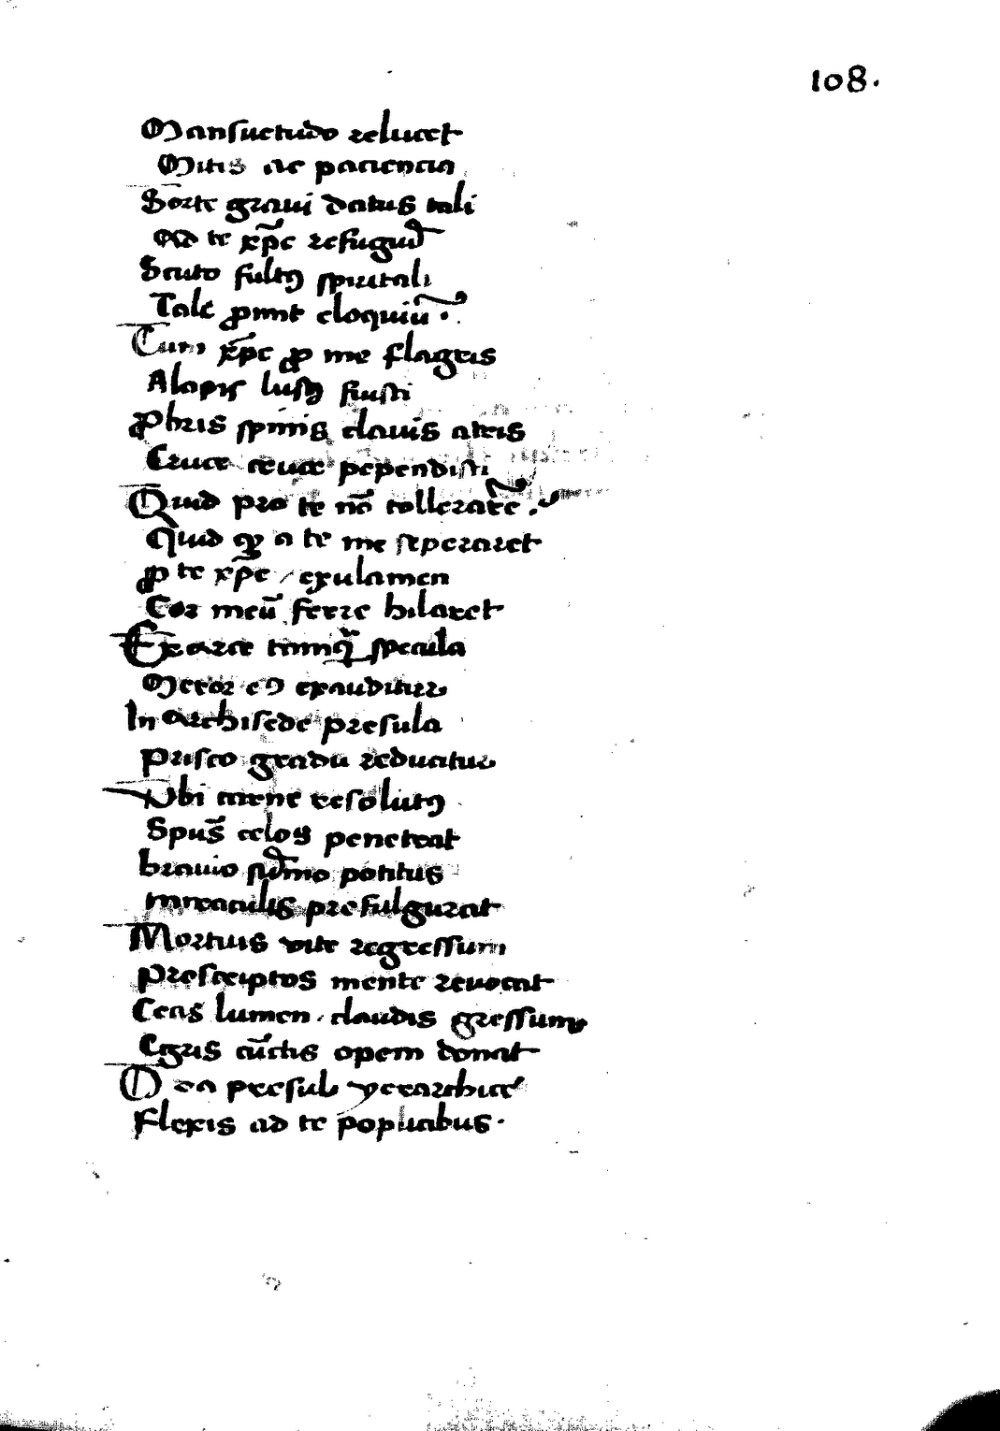 108.
Mansuetudo relucet
Mitis ac paciencia
Sorte graui datus tali
Ad te xp̄e refugiū
Scuto fultꝰ spiritali
Tale ꝓmit eloquiū.
Tum xp̄e ꝓ me flagris
Alapis lusꝰ fiusti
ꝓbris spinis clauis atris
Cruce truce pependisti
Quid pro te nō tollerarē.
Quid ꝙ a te me seperaret
ꝓ te xp̄e / exulamen
Cor meū ferre hilaret
Ex arce tamqᷓ specula
Meror eꝰ exauditur
In archisede presula
prisco gradu reducitur
Vbi carne resolutꝰ
Spūs celos penetrat
brauio sūmo potitus
miraculis prefulgurat
Mortuis vite regressum
prescriptos mente reuocat
Cecis lumen. claudis gressum
Egris cūctis opem donat
O ea presul yerarchice
flexis ad te poplicibus.